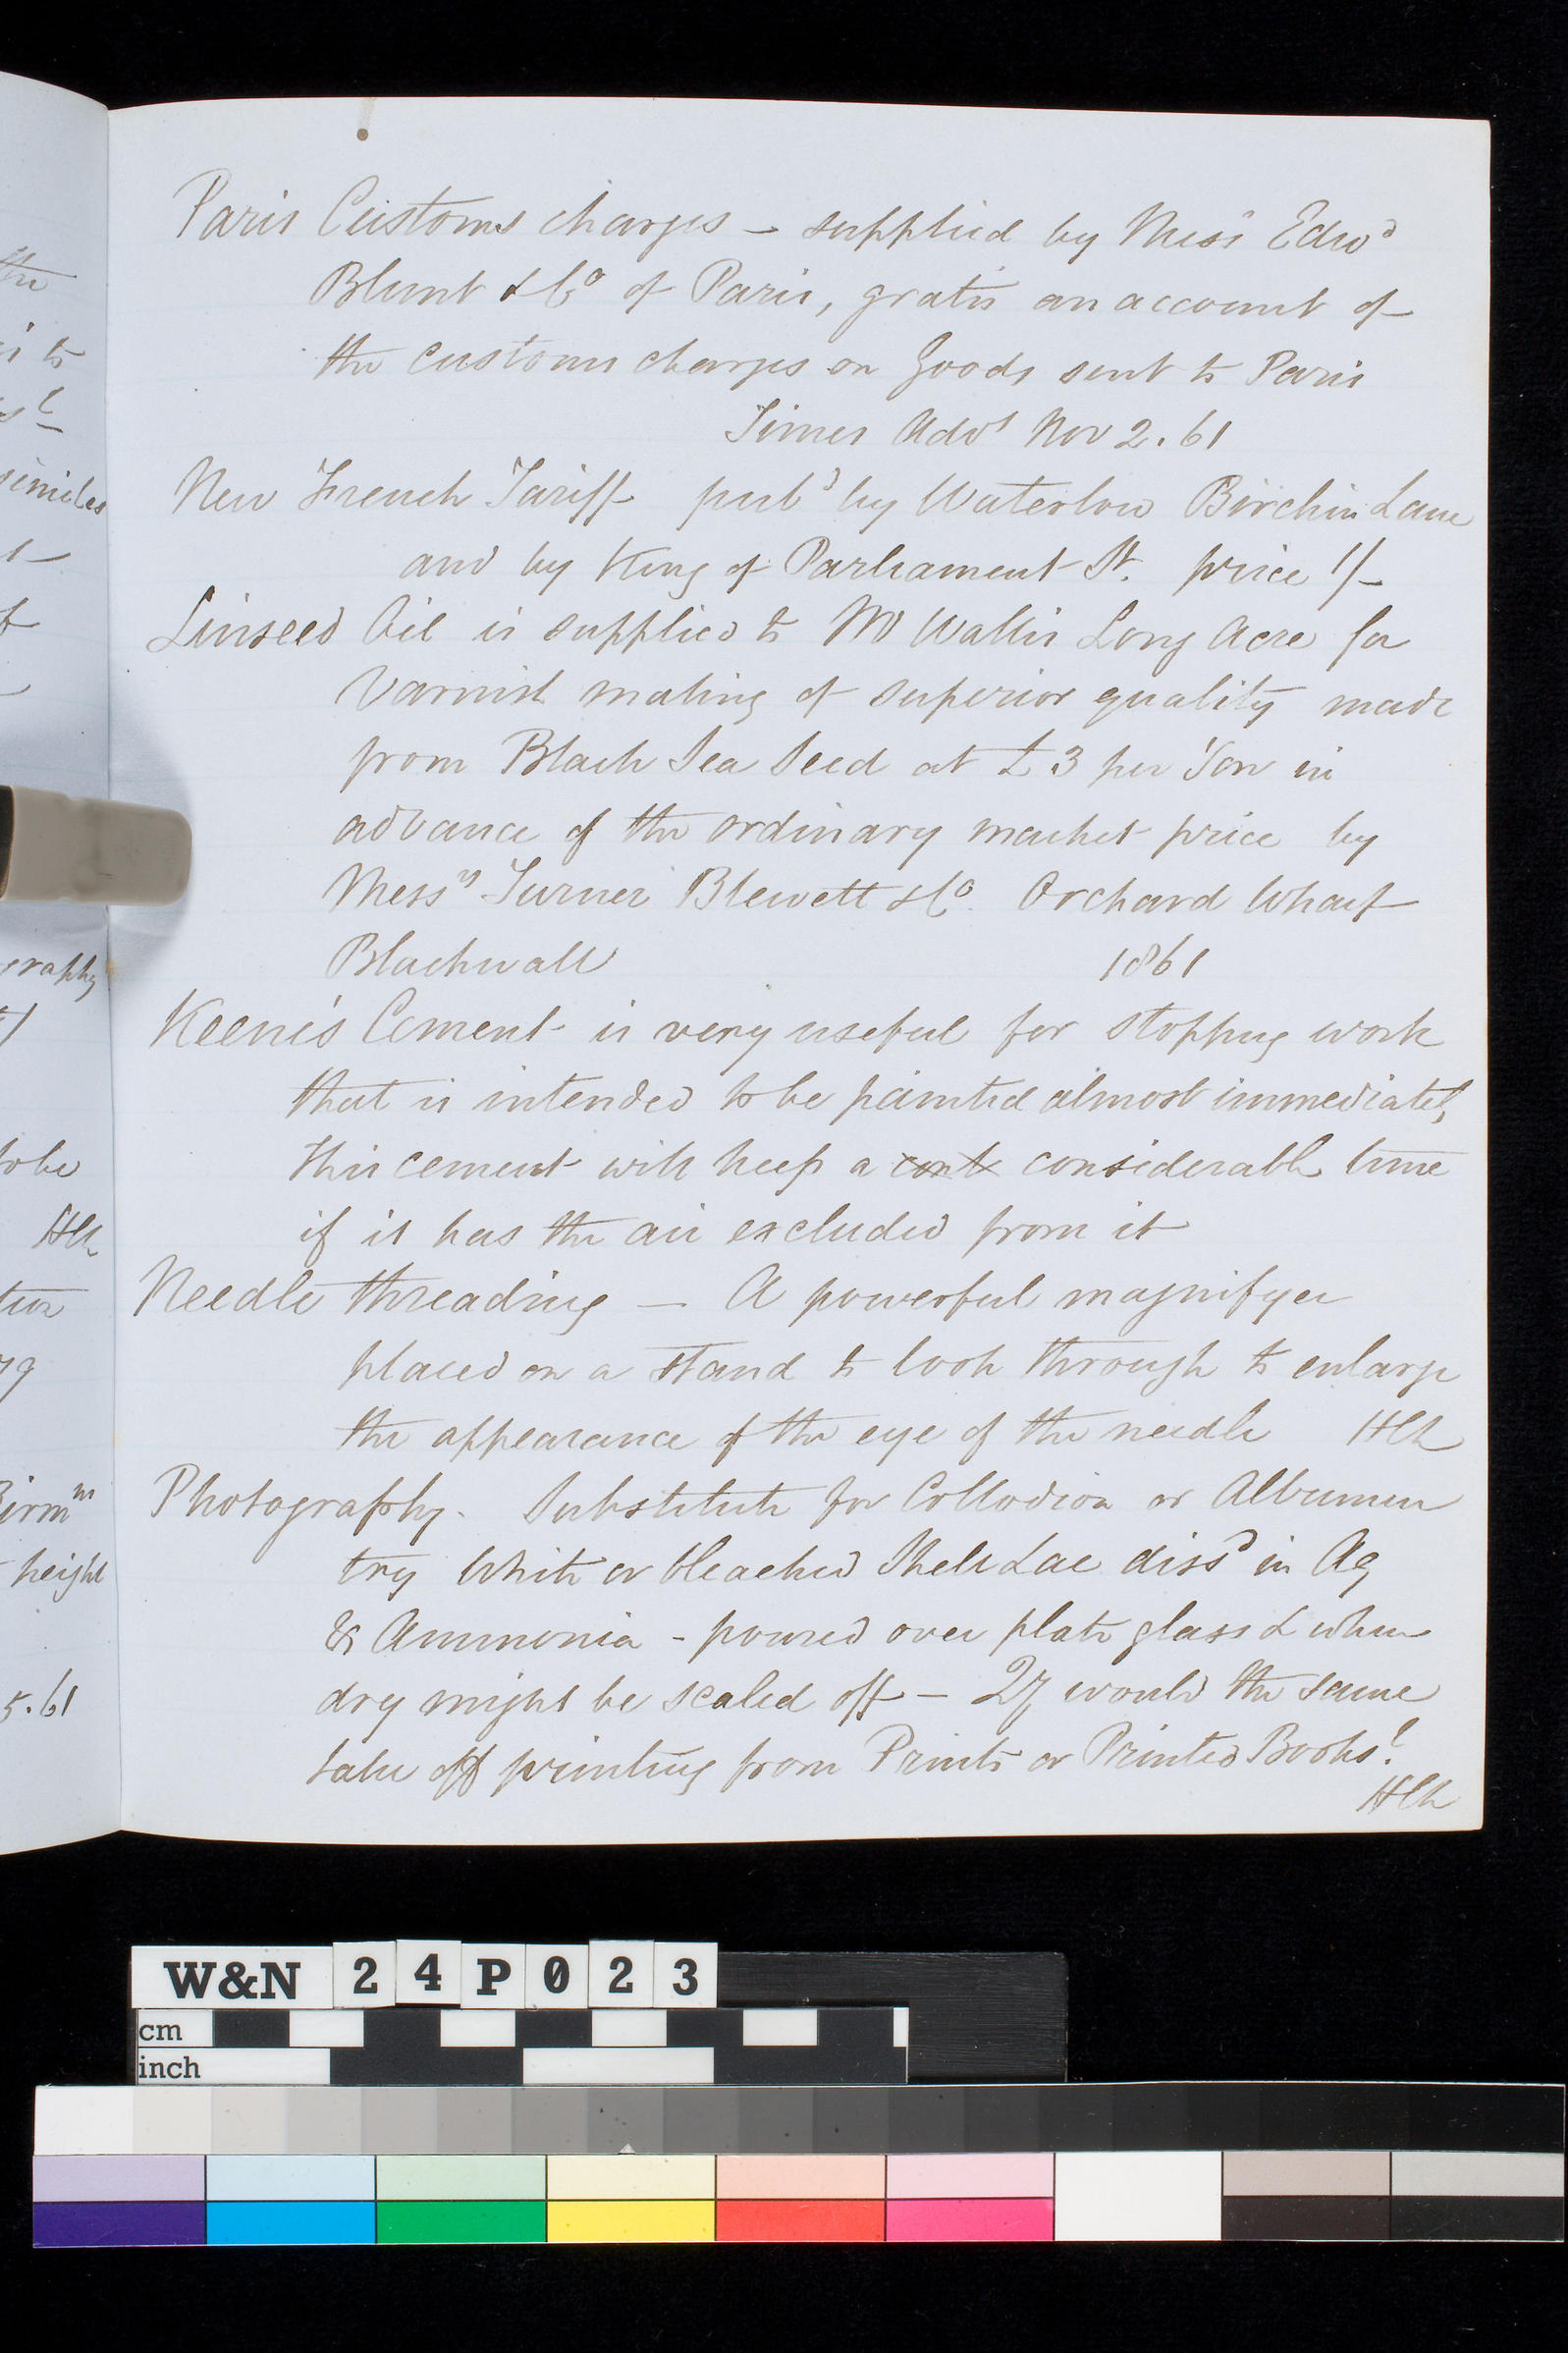 Paris Customs charges – supplied by Mess.rs Edw.d
Blunt & Co of Paris, gratis an account of
the customs charges on Goods sent to Paris
Times Advt Nov 2. 61
New French Tariff pub.d by Waterlow Birchin Lane
and by King of Parliament St. price 1/–
Linseed Oil is supplied to Mr Wallis Long Acre for
Varnish making of superior quality made
from Black Sea Seed at £3 per Ton in
advance of the ordinary market price by
Mess.rs Turner Blewett & Co. Orchard Wharf
Blackwall 1861
Keene's Cement is very useful for stopping work
that is intended to be painted almost immediately
this cement will keep a cont considerable time
if it has the air excluded from it
Needle threading – A powerful magnifyer
placed on a stand to look through to enlarge
the appearance of the eye of the needle HCh
Photography. Substitute for Collodion or Albumen
try White or bleached Shell Lac diss.d in Aq
& Ammonia - poured over plate glass & when
dry might be scaled off – Qy would the same
take off printing from Prints or Printed Books?
HCh
the
to
similes
graphy
to be
HCh
Birm.m
height
5.61
W&N 24P023
cm
inch